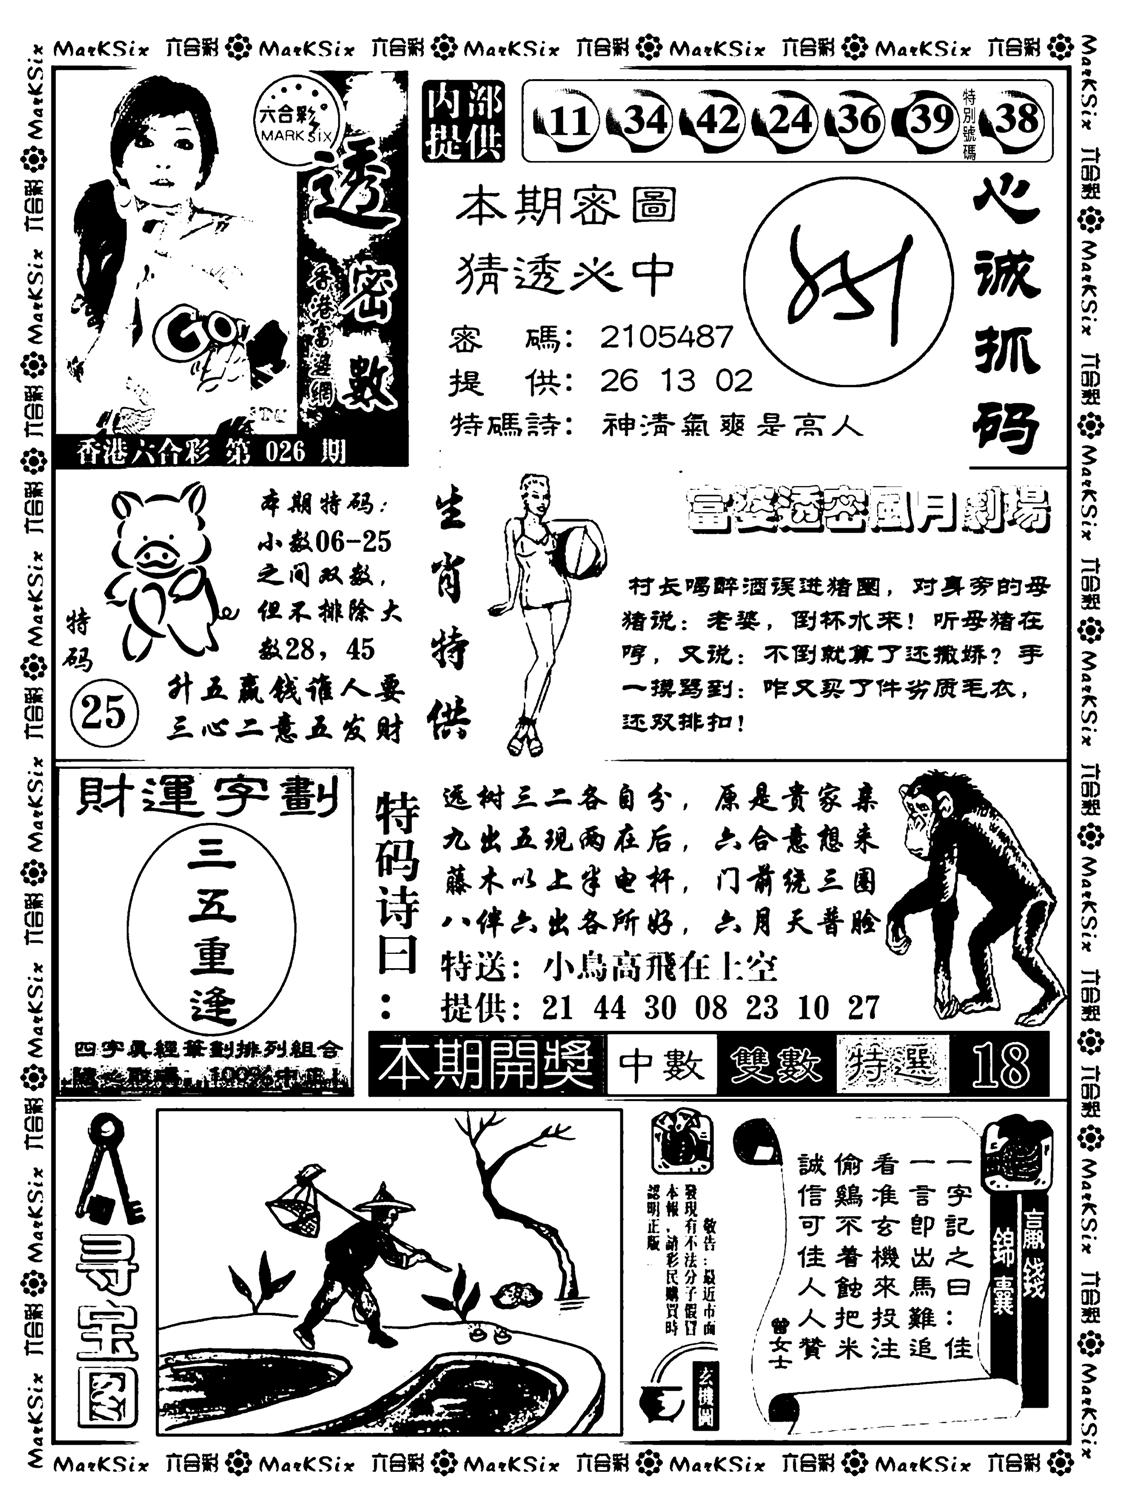 MarKSix 六合彩 MarKSix 六合彩 MarKSix 六合彩 MarKSix 六合彩 MarKSix 六合彩
六合彩
MARKSIX
透密數
香港富婆網
GO
香港六合彩 第 026 期
内部
提供
11 34 42 24 36 39 特別號碼 38
本期密圖
猜透必中
密 碼: 2105487
提 供: 26 13 02
特碼詩: 神淸氣爽是高人
心诚抓码
特码
25
本期特码:
小数06-25
之间双数,
但不排除大
数28, 45
升五赢钱谁人要
三心二意五发财
生肖特供
富婆透密風月劇場
村长喝醉酒误进猪圈, 对身旁的母
猪说: 老婆, 倒杯水来! 听母猪在
哼, 又说: 不倒就算了还撒娇? 手
一摸骂到: 咋又买了件劣质毛衣,
还双排扣!
財運字劃
三五重逢
四字真經筆劃排列組合
特码诗曰:
远树三二各自分, 原是贵家亲
九出五现两在后, 六合意想来
藤木以上半电杆, 门前绕三圈
八伴六出各所好, 六月天普脸
特送: 小鳥高飛在上空
提供: 21 44 30 08 23 10 27
本期開獎 中數 雙數 特選 18
寻宝图
敬告:最近市面
發現有不法分子假冒
本報,請彩民購買時
認明正版
玄機圖
贏錢
錦囊
一字記之曰:佳
一言卽出馬難追
看准玄機來投注
偷鷄不着蝕把米
誠信可佳人人贊
曾女士
MarKSix 六合彩 MarKSix 六合彩 MarKSix 六合彩 MarKSix 六合彩 MarKSix 六合彩